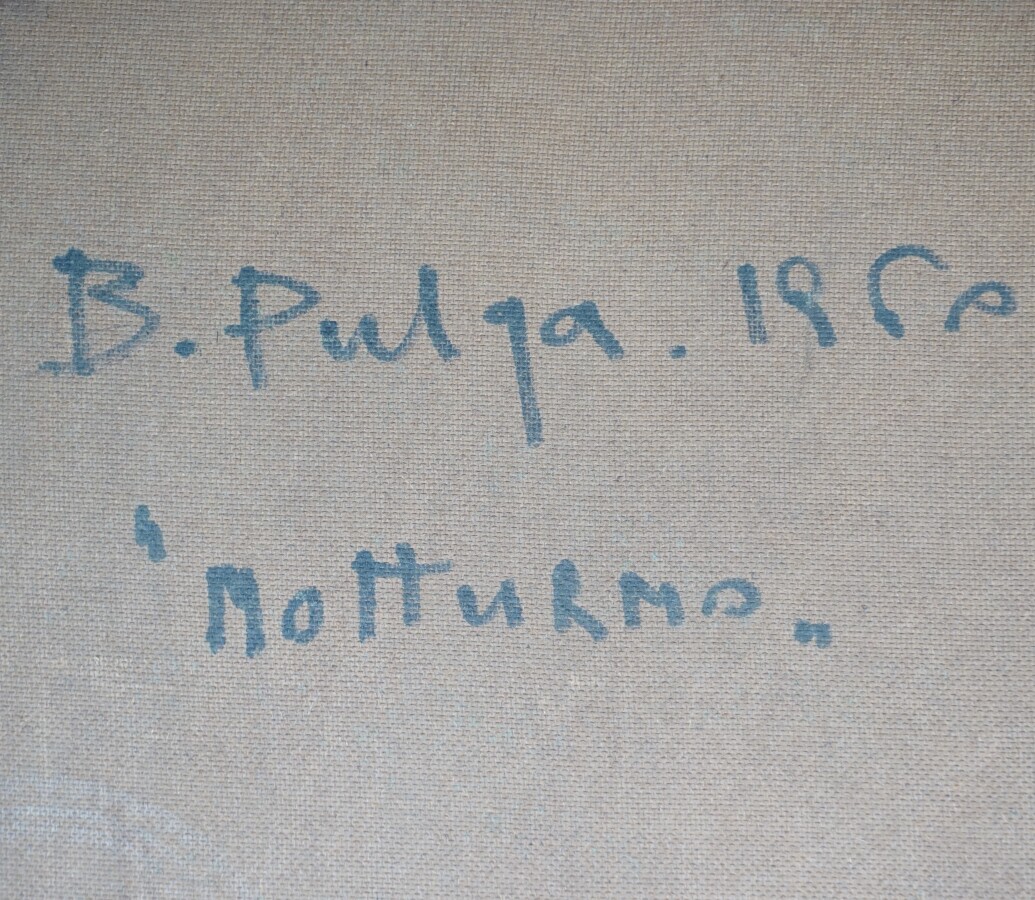 B. Pulga. 1960
"notturno„